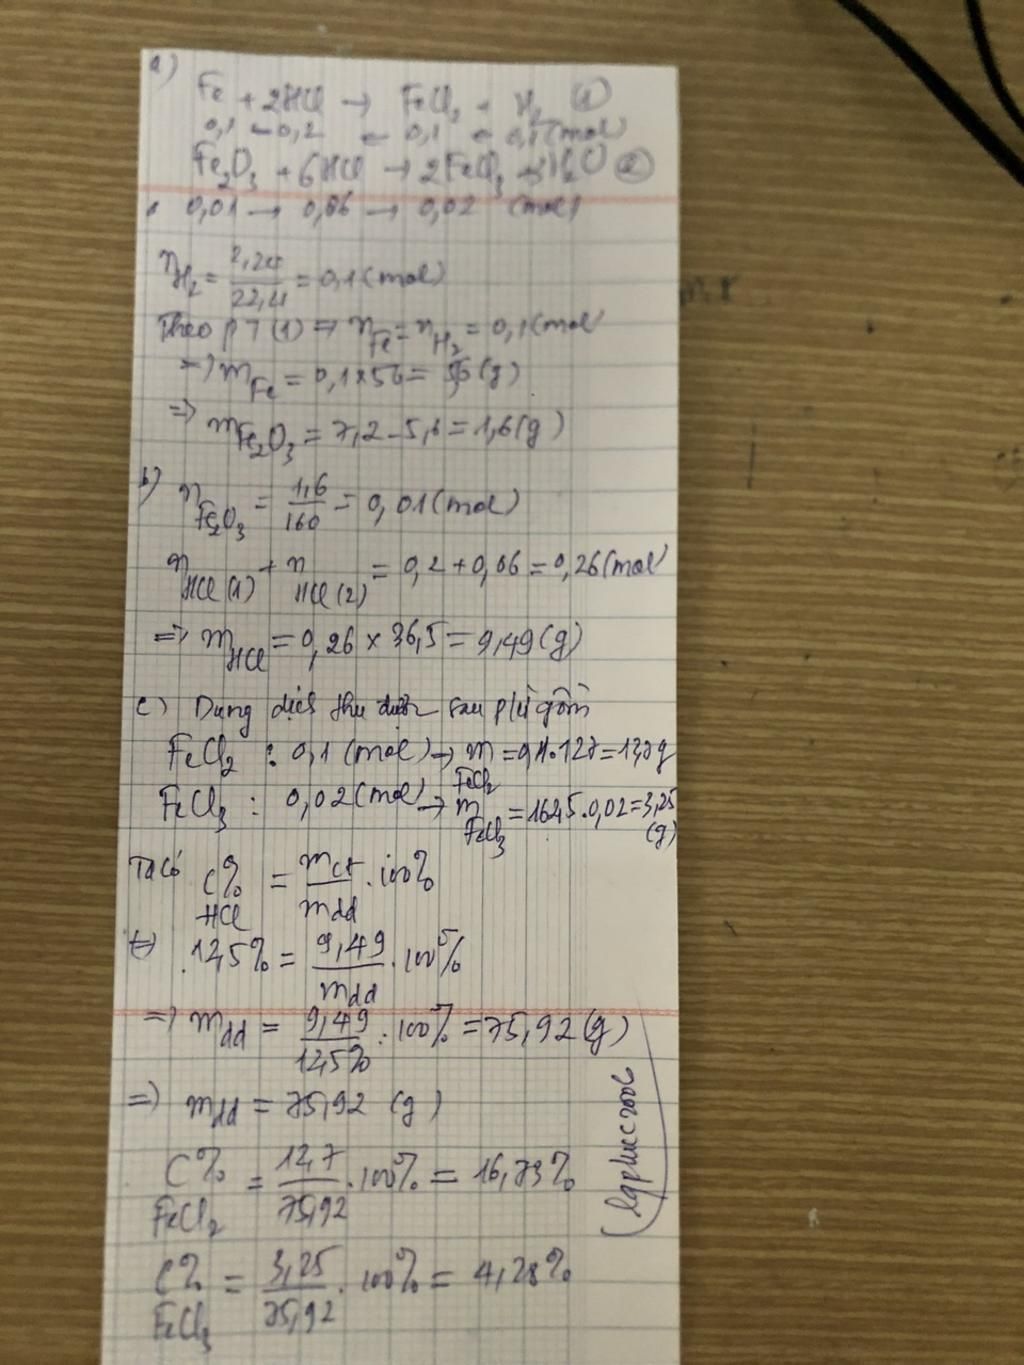 a)
Fe + 2HCl → FeCl₂ + H₂ (1)
0,1 ← 0,2 ← 0,1 ← 0,1 (mol)
Fe₂O₃ + 6HCl → 2FeCl₃ + 3H₂O (2)
0,01 → 0,06 → 0,02 (mol)
n H₂ = 2,24/22,4 = 0,1 (mol)
Theo pT (1) ⇒ n Fe = n H₂ = 0,1 (mol
⇒ m Fe = 0,1 x 56 = 5,6 (g)
⇒ m Fe₂O₃ = 7,2 - 5,6 = 1,6 (g)
b) n Fe₂O₃ = 1,6/160 = 0,01 (mol)
n HCl (1) + n HCl (2) = 0,2 + 0,06 = 0,26 (mol
⇒ m HCl = 0,26 x 36,5 = 9,49 (g)
c) Dung dịch thu được sau p/ứ gồm
FeCl₂ : 0,1 (mol) → m FeCl₂ = 0,1.127 = 12,7g
FeCl₃ : 0,02 (mol) → m FeCl₃ = 162,5.0,02 = 3,25 (g)
Ta có C% HCl = mct/mdd . 100%
⇔ 12,5% = 9,49/mdd . 100%
⇒ mdd = 9,49/12,5% . 100% = 75,92 (g)
⇒ mdd = 75,92 (g)
C% FeCl₂ = 12,7/75,92 . 100% = 16,73%
C% FeCl₃ = 3,25/75,92 . 100% = 4,28%